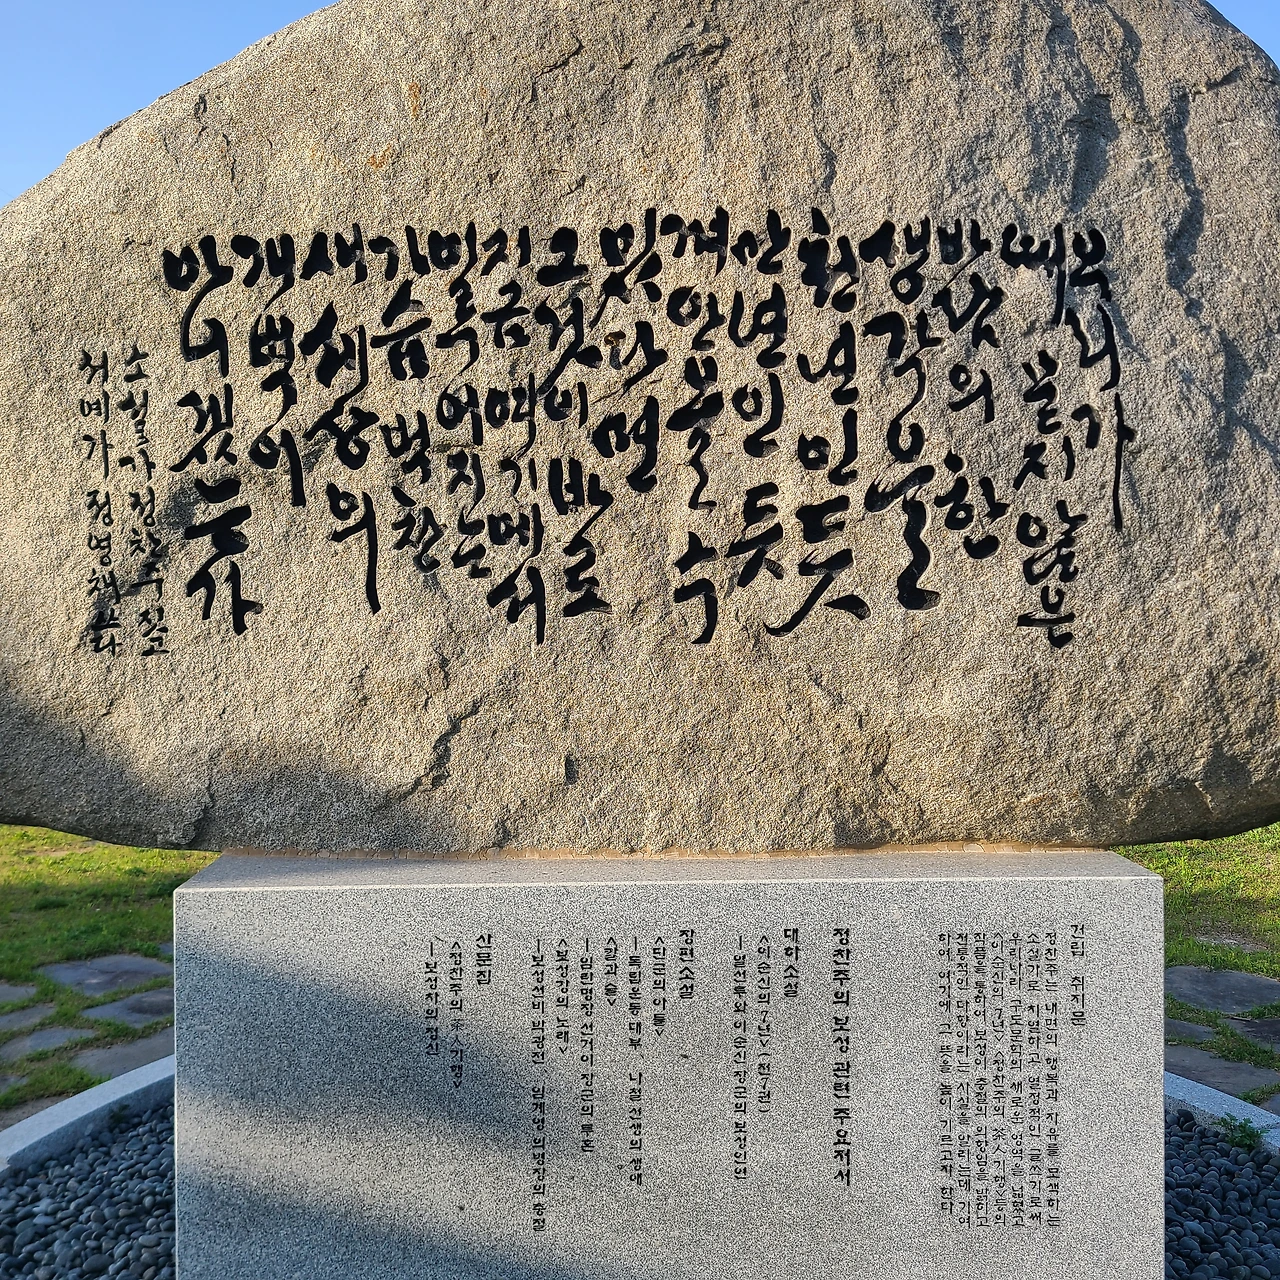 우리가
때 묻지 않은
밤낮의 한
생각을
천년인듯
만년인듯
껴안을 수
있다면
그것이 바로
지금 여기에서
이루어지는
가슴 벅찬
새 세상의
개벽이
아니겠는가
소설가 정찬주 짓고
서예가 정영채 쓰다
건립 취지문
정찬주는 내면의 행복과 자유를 모색하는
소설가로 치열하고 열정적인 글쓰기로써
우리나라 구도문학의 새로운 영역을 넓혔고
<이순신의 7년> <정찬주의 茶人기행>등의
작품들을 통하여 보성이 충절의 의향임을 밝히고
전통적인 다향이라는 사실을 알리는데 기여
하여 여기에 그 뜻을 높이 기르고자 한다
정찬주의 보성 관련 주요저서
대하소설
<이순신의 7년> (전7권)
―일선루와 이순신 장군의 보성인연
장편소설
<단군의 아들>
―독립운동 대부 나철 선생의 생애
<칼과 술>
―임란명장 선거이 장군의 투혼
<보성강의 노래>
―보성선비 박광전 임계영 의병장의 충절
산문집
<정찬주의 茶人기행>
―보성차의 정신